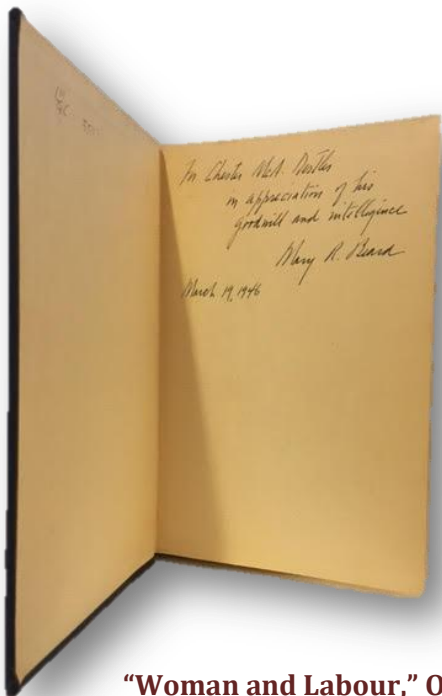 For Chester McA. Destler
in appreciation of his
goodwill and intelligence
Mary R. Beard
March 19, 1946
“Woman and Labour,” O